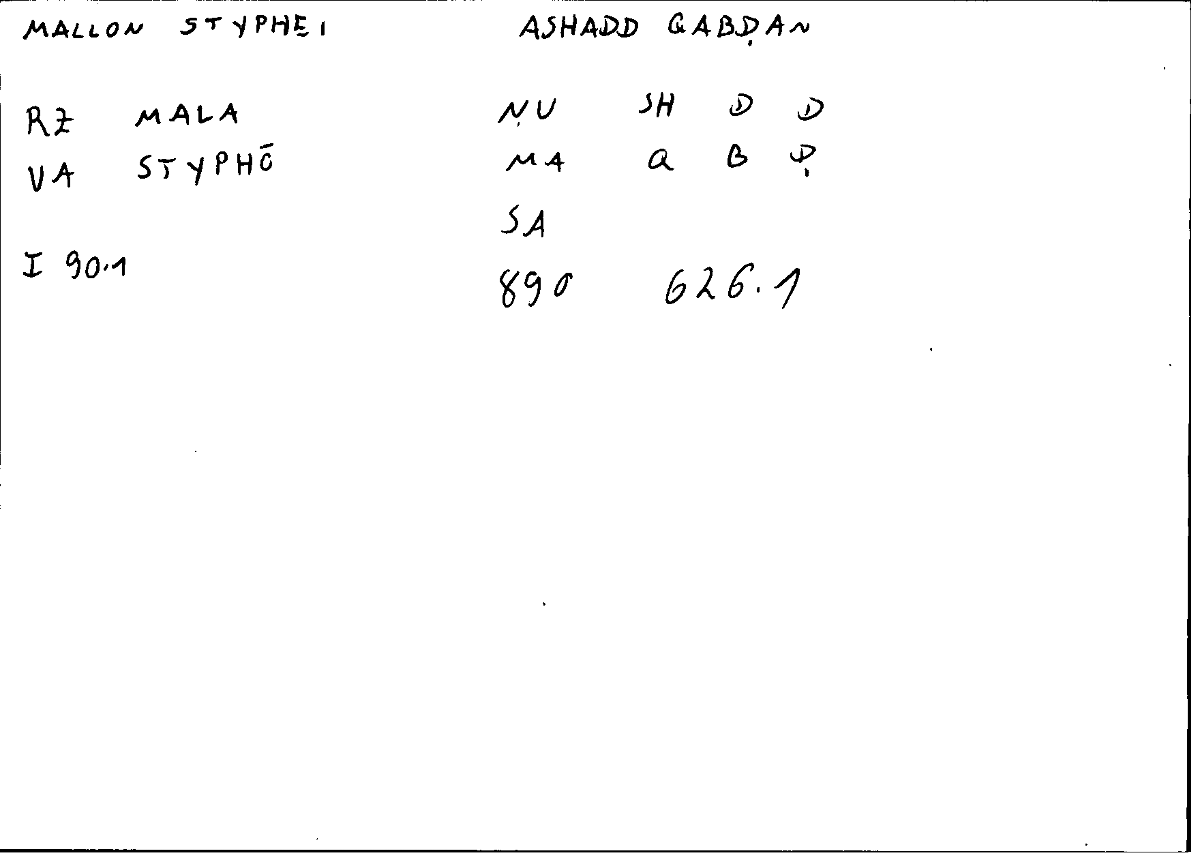 MALLON STYPHEI ASHADD QABḌAN
RZ MALA NU SH D D
VA STYPHŌ MA Q B Ḍ
SA
I 90.1
890 626.1